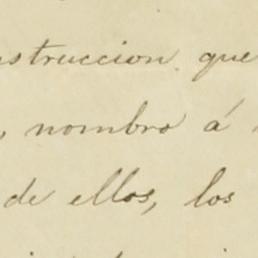 struccion que
, nombro á
de ellos, los